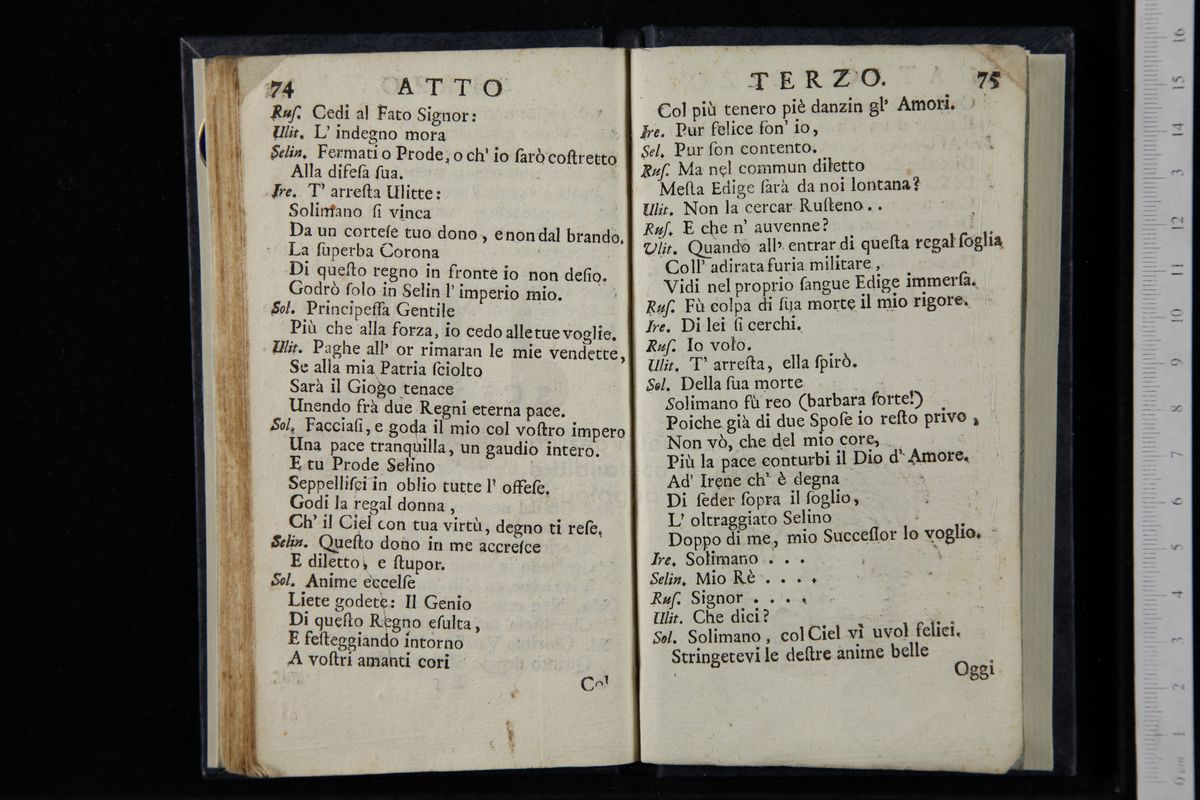 74 ATTO
Ruſ. Cedi al Fato Signor:
Ulit. L' indegno mora
Selin. Fermati o Prode, o ch' io ſarò coſtretto
Alla difeſa ſua.
Ire. T' arreſta Ulitte:
Solimano ſi vinca
Da un corteſe tuo dono, e non dal brando.
La ſuperba Corona
Di queſto regno in fronte io non deſio.
Godrò ſolo in Selin l' imperio mio.
Sol. Principeſſa Gentile
Più che alla forza, io cedo alle tue voglie.
Ulit. Paghe all' or rimaran le mie vendette,
Se alla mia Patria ſciolto
Sarà il Giogo tenace
Unendo frà due Regni eterna pace.
Sol. Facciaſi, e goda il mio col voſtro impero
Una pace tranquilla, un gaudio intero.
E tu Prode Selino
Seppelliſci in oblio tutte l' offeſe.
Godi la regal donna,
Ch' il Ciel con tua virtù, degno ti reſe.
Selin. Queſto dono in me accreſce
E diletto, e ſtupor.
Sol. Anime eccelſe
Liete godete: Il Genio
Di queſto Regno eſulta,
E feſteggiando intorno
A voſtri amanti cori
Col
TERZO. 75
Col più tenero piè danzin gl' Amori.
Ire. Pur felice ſon' io,
Sel. Pur ſon contento.
Ruſ. Ma nel commun diletto
Meſta Edige ſarà da noi lontana?
Ulit. Non la cercar Ruſteno..
Ruſ. E che n' auvenne?
Vlit. Quando all' entrar di queſta regal ſoglia
Coll' adirata furia militare,
Vidi nel proprio ſangue Edige immerſa.
Ruſ. Fù colpa di ſua morte il mio rigore.
Ire. Di lei ſi cerchi.
Ruſ. Io volo.
Ulit. T' arreſta, ella ſpirò.
Sol. Della ſua morte
Solimano fù reo (barbara ſorte!)
Poiche già di due Spoſe io reſto privo,
Non vò, che del mio core,
Più la pace conturbi il Dio d' Amore.
Ad' Irene ch' è degna
Di ſeder ſopra il ſoglio,
L' oltraggiato Selino
Doppo di me, mio Succeſſor lo voglio.
Ire. Solimano . . .
Selin. Mio Rè . . . .
Ruſ. Signor . . . .
Ulit. Che dici?
Sol. Solimano, col Ciel vi vuol felici.
Stringetevi le deſtre anime belle
Oggi